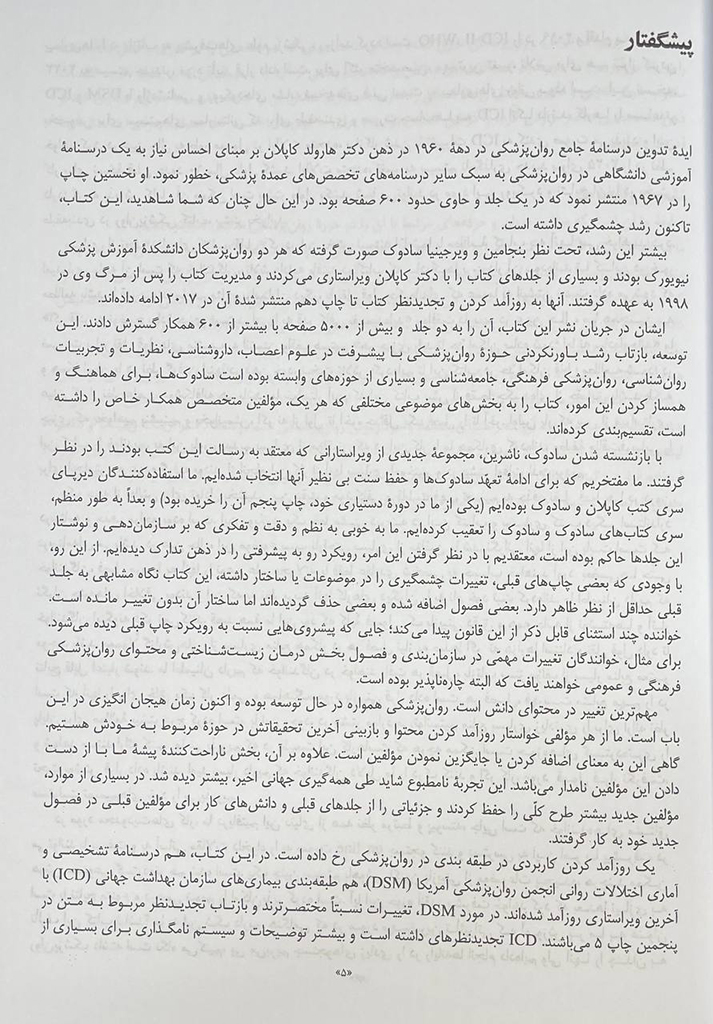 پیشگفتار
ایدهٔ تدوین درسنامهٔ جامع روان‌پزشکی در دههٔ ۱۹۶۰ در ذهن دکتر هارولد کاپلان بر مبنای احساس نیاز به یک درسنامهٔ
آموزشی دانشگاهی در روان‌پزشکی به سبک سایر درسنامه‌های تخصص‌های عمدهٔ پزشکی، خطور نمود. او نخستین چاپ
را در ۱۹۶۷ منتشر نمود که در یک جلد و حاوی حدود ۶۰۰ صفحه بود. در این حال چنان که شما شاهدید، این کتاب،
تاکنون رشد چشمگیری داشته است.
بیشتر این رشد، تحت نظر بنجامین و ویرجینیا سادوک صورت گرفته که هر دو روان‌پزشکان دانشکدهٔ آموزش پزشکی
نیویورک بودند و بسیاری از جلدهای کتاب را با دکتر کاپلان ویراستاری می‌کردند و مدیریت کتاب را پس از مرگ وی در
۱۹۹۸ به عهده گرفتند. آنها به روزآمد کردن و تجدیدنظر کتاب تا چاپ دهم منتشر شدهٔ آن در ۲۰۱۷ ادامه داده‌اند.
ایشان در جریان نشر این کتاب، آن را به دو جلد و بیش از ۵۰۰۰ صفحه با بیشتر از ۶۰۰ همکار گسترش دادند. این
توسعه، بازتاب رشد باورنکردنی حوزهٔ روان‌پزشکی با پیشرفت در علوم اعصاب، داروشناسی، نظریات و تجربیات
روان‌شناسی، روان‌پزشکی فرهنگی، جامعه‌شناسی و بسیاری از حوزه‌های وابسته بوده است سادوک‌ها، برای هماهنگ و
همساز کردن این امور، کتاب را به بخش‌های موضوعی مختلفی که هر یک، مؤلفین متخصص همکار خاص را داشته
است، تقسیم‌بندی کرده‌اند.
با بازنشسته شدن سادوک، ناشرین، مجموعهٔ جدیدی از ویراستارانی که معتقد به رسالت این کتب بودند را در نظر
گرفتند. ما مفتخریم که برای ادامهٔ تعهّد سادوک‌ها و حفظ سنت بی نظیر آنها انتخاب شده‌ایم. ما استفاده‌کنندگان دیرپای
سری کتب کاپلان و سادوک بوده‌ایم (یکی از ما در دورهٔ دستیاری خود، چاپ پنجم آن را خریده بود) و بعداً به طور منظم،
سری کتاب‌های سادوک و سادوک را تعقیب کرده‌ایم. ما به خوبی به نظم و دقت و تفکری که بر سازمان‌دهی و نوشتار
این جلدها حاکم بوده است، معتقدیم با در نظر گرفتن این امر، رویکرد رو به پیشرفتی را در ذهن تدارک دیده‌ایم. از این رو،
با وجودی که بعضی چاپ‌های قبلی، تغییرات چشمگیری را در موضوعات یا ساختار داشته، این کتاب نگاه مشابهی به جلد
قبلی حداقل از نظر ظاهر دارد. بعضی فصول اضافه شده و بعضی حذف گردیده‌اند اما ساختار آن بدون تغییر مانده است.
خواننده چند استثنای قابل ذکر از این قانون پیدا می‌کند؛ جایی که پیشروی‌هایی نسبت به رویکرد چاپ قبلی دیده می‌شود.
برای مثال، خوانندگان تغییرات مهمّی در سازمان‌بندی و فصول بخش درمان زیست‌شناختی و محتوای روان‌پزشکی
فرهنگی و عمومی خواهند یافت که البته چاره‌ناپذیر بوده است.
مهم‌ترین تغییر در محتوای دانش است. روان‌پزشکی همواره در حال توسعه بوده و اکنون زمان هیجان انگیزی در این
باب است. ما از هر مؤلفی خواستار روزآمد کردن محتوا و بازبینی آخرین تحقیقاتش در حوزهٔ مربوط به خودش هستیم.
گاهی این به معنای اضافه کردن یا جایگزین نمودن مؤلفین است. علاوه بر آن، بخش ناراحت‌کنندهٔ پیشهٔ ما با از دست
دادن این مؤلفین نامدار می‌باشد. این تجربهٔ نامطبوع شاید طی همه‌گیری جهانی اخیر، بیشتر دیده شد. در بسیاری از موارد،
مؤلفین جدید بیشتر طرح کلّی را حفظ کردند و جزئیاتی را از جلدهای قبلی و دانش‌های کار برای مؤلفین قبلی در فصول
جدید خود به کار گرفتند.
یک روزآمد کردن کاربردی در طبقه بندی در روان‌پزشکی رخ داده است. در این کتاب، هم درسنامهٔ تشخیصی و
آماری اختلالات روانی انجمن روان‌پزشکی آمریکا (DSM)، هم طبقه‌بندی بیماری‌های سازمان بهداشت جهانی (ICD) با
آخرین ویراستاری روزآمد شده‌اند. در مورد DSM، تغییرات نسبتاً مختصرترند و بازتاب تجدیدنظر مربوط به متن در
پنجمین چاپ ۵ می‌باشند. ICD تجدیدنظرهای داشته است و بیشتر توضیحات و سیستم نامگذاری برای بسیاری از
«۵»